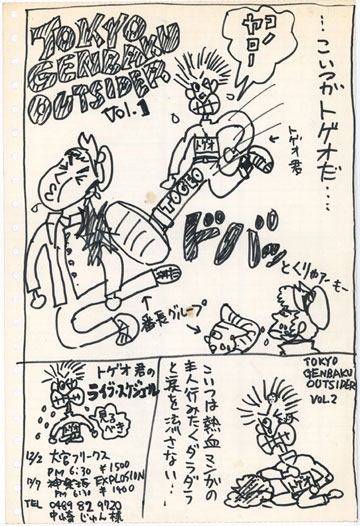 TOKYO
GENBAKU
OUTSIDER
Vol.1
…こいつがトゲオだ…
コノ
ヤロー
トゲオ
←トゲオ君
TOGEO
ドバッ
とくりゃあーもー
番長グループ
トゲオ君の
ライブ・スケジュール
見るべき
12/2 大宮フリークス
PM 6:30 ¥1500
EXPLOSION
PM 6:30 ¥1400
TEL 0489 82 9720
じゅん様
こいつは熱血マンガの
主人行みたくダラダラ
と涙を流さない…
TOKYO
GENBAKU
OUTSIDER
VOL.2